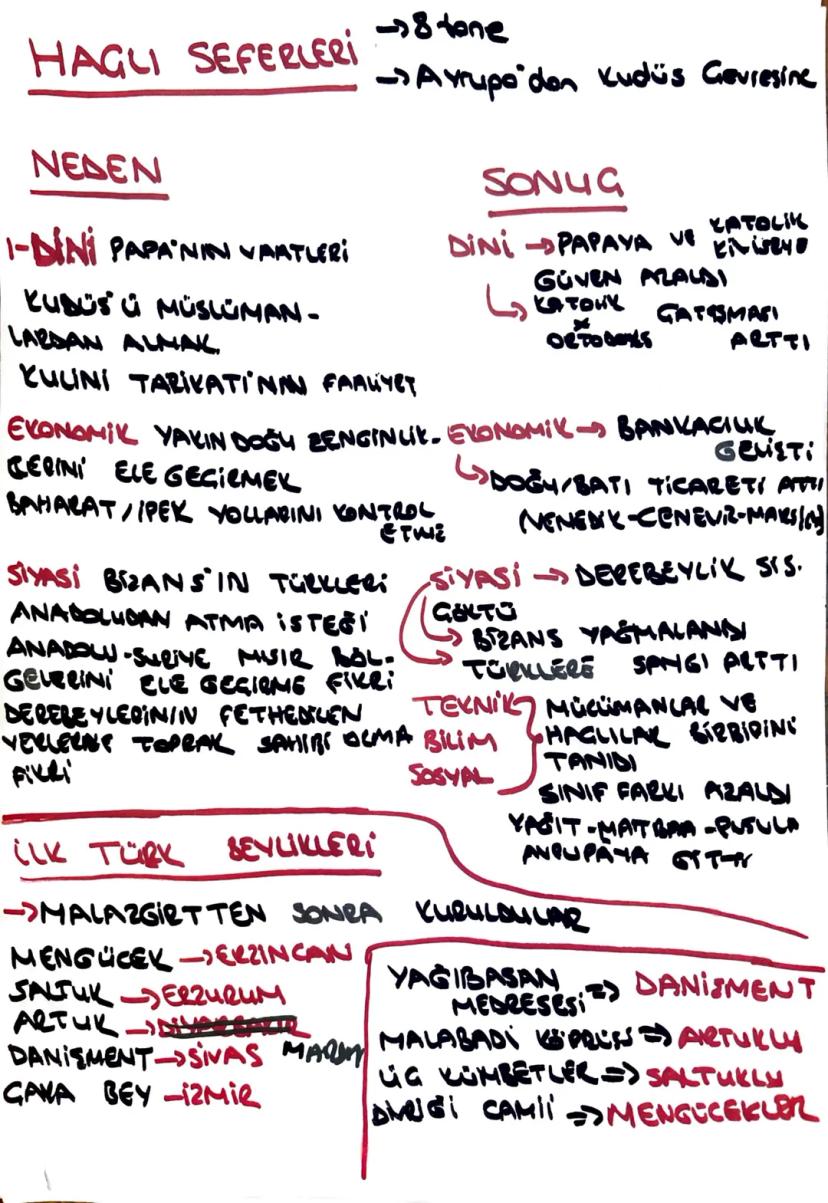 HAÇLI SEFERLERİ
→ 8 tane
→ Avrupa'dan Kudüs Çevresine
NEDEN
1-DİNİ PAPA'NIN VAATLERİ
KUDÜS'Ü MÜSLÜMAN-
LARDAN ALMAK
KULİNİ TARİKATI'NIN FAALİYET
EKONOMİK YAKIN DOĞU ZENGİNLİK-
LERİNİ ELE GEÇİRMEK
BAHARAT/İPEK YOLLARINI KONTROL
ETME
SİYASİ BİZANS'IN TÜRKLERİ
ANADOLUDAN ATMA İSTEĞİ
ANADOLU-SURİYE MISIR BÖL-
GELERİNİ ELE GEÇİRME FİKRİ
DEREBEYLERİNİN FETHEDİLEN
YERLERDE TOPRAK SAHİBİ OLMA
FİKRİ
SONUÇ
DİNİ → PAPAYA VE KATOLİK
KİLİSEYE
GÜVEN AZALDI
↳ KATOLİK
x
ORTODOKS
ÇATIŞMASI
ARTTI
EKONOMİK → BANKACILIK
GELİŞTİ
↳ DOĞU/BATI TİCARETİ ATTI
(VENEDİK-CENEVİZ-MARSİLYA)
SİYASİ → DEREBEYLİK SİS.
ÇÖKTÜ
→ BİZANS YAĞMALANDI
→ TÜRKLERE SAYGI ARTTI
TEKNİK
BİLİM
SOSYAL
MÜSLÜMANLAR VE
HAÇLILAR BİRBİRİNİ
TANIDI
SINIF FARKI AZALDI
KAĞIT-MATBAA-PUSULA
AVRUPAYA GİTTİ
İLK TÜRK BEYLİKLERİ
→ MALAZGİRTTEN SONRA KURULDULAR
MENGÜCEK → ERZİNCAN
SALTUK → ERZURUM
ARTUK → MARDİN
DANİŞMENT → SİVAS
ÇAKA BEY – İZMİR
YAĞIBASAN
MEDRESESİ => DANİŞMENT
MALABADİ KÖPRÜSÜ => ARTUKLU
ÜÇ KÜMBETLER => SALTUKLU
DİVRİĞİ CAMİİ => MENGÜCEKLER